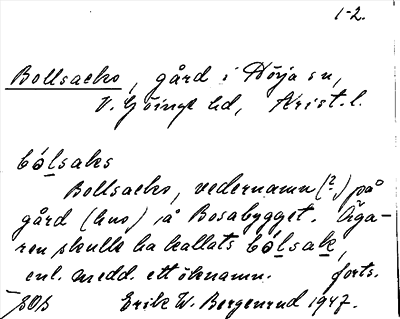 1-2.
Bollsacks, gård i Hörja sn,
V. Göinge hd, Krist. l.
bó̱lsaks
Bollsacks, vedernamn (?) på
gård (hus) på Bosabygget. Äga-
ren skulle ha kallats bó̱lsak,
enl. medd. ett öknamn. forts.
Erik W. Bergenrud 1947.